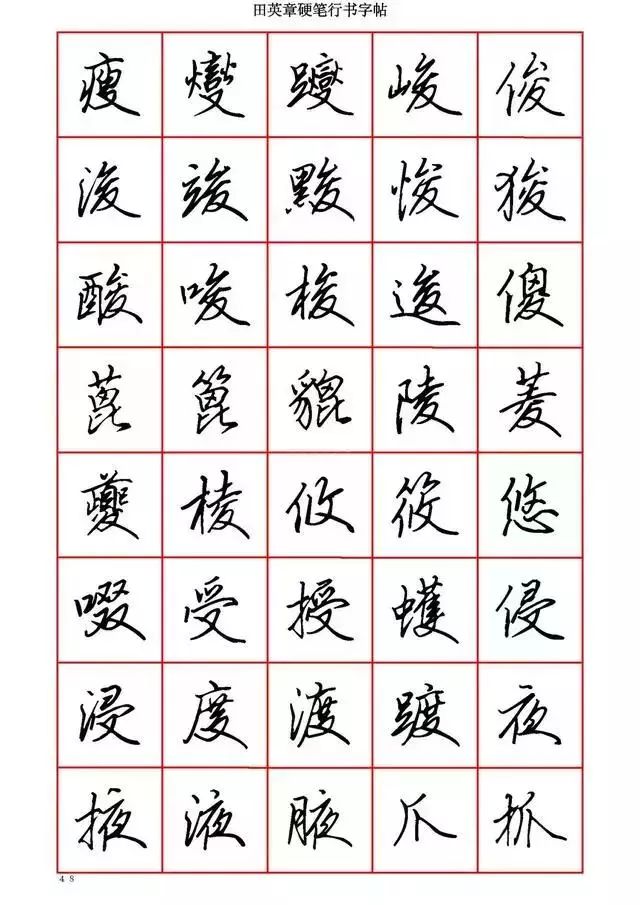 田英章硬笔行书字帖
瘦 燮 躞 峻 俊
浚 竣 黢 悛 狻
酸 唆 梭 逡 傻
蓖 篦 貔 陵 菱
夔 棱 攸 筱 悠
啜 受 授 蠖 侵
浸 度 渡 踱 夜
掖 液 腋 爪 抓
48